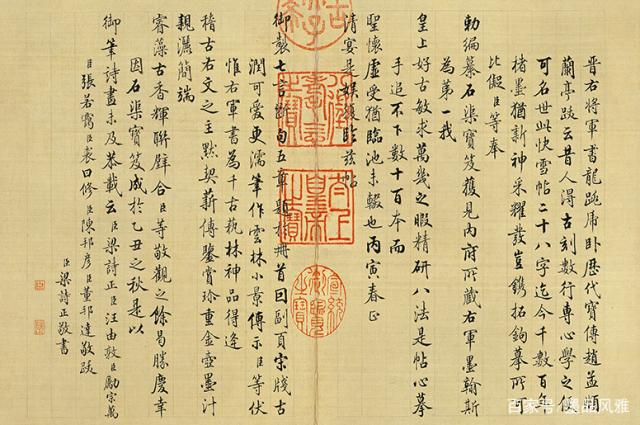 晉右將軍書龍跳虎卧歷代寶傳趙孟頫
蘭亭跋云昔人得古刻數行專心學之便
可名世此快雪帖二十八字迄今千數百年
楮墨猶新神采耀發豈鐫拓鉤摹所可
比儗臣等奉
勅編纂石渠寶笈獲見內府所藏右軍墨翰斯
為第一我
皇上好古敏求萬幾之暇精研八法是帖心摹
手追不下數十百本而
聖懷虛受猶臨池未輟也丙寅春正
清宴是娛復臨茲帖
御製七言斷句五章題於冊首因副頁宋牋古
潤可愛更濡筆作雲林小景傳示臣等伏
惟右軍書為千古藝林神品得逢
稽古右文之主默契薪傳鑒賞珍重金壺墨汁
親灑簡端
睿藻古香輝聯璧合臣等敬觀之餘曷勝慶幸
因石渠寶笈成於乙丑之秋是以
御筆詩畫未及恭載云臣梁詩正臣汪由敦臣勵宗萬
臣張若靄臣裘曰修臣陳邦彥臣董邦達敬跋
臣梁詩正敬書
八徵耄念之寶
太上皇帝之寶
宣統御覽之寶
百家号/墨品风雅